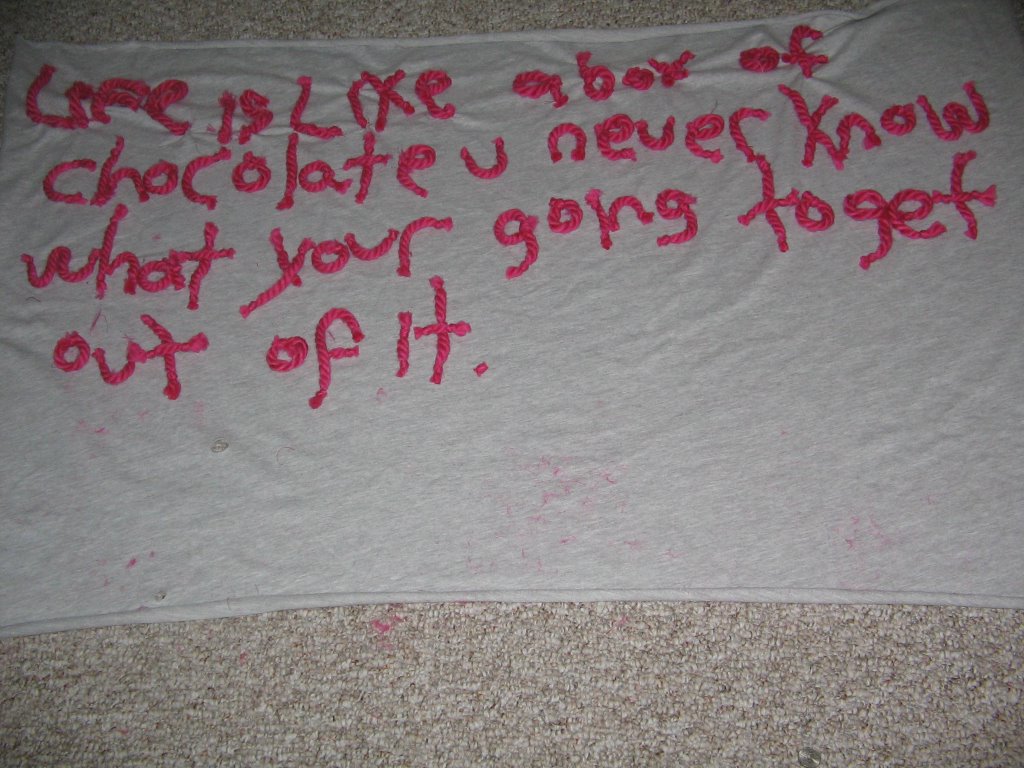 Life is Like a box of
chocolate u never know
what your going to get
out of it.